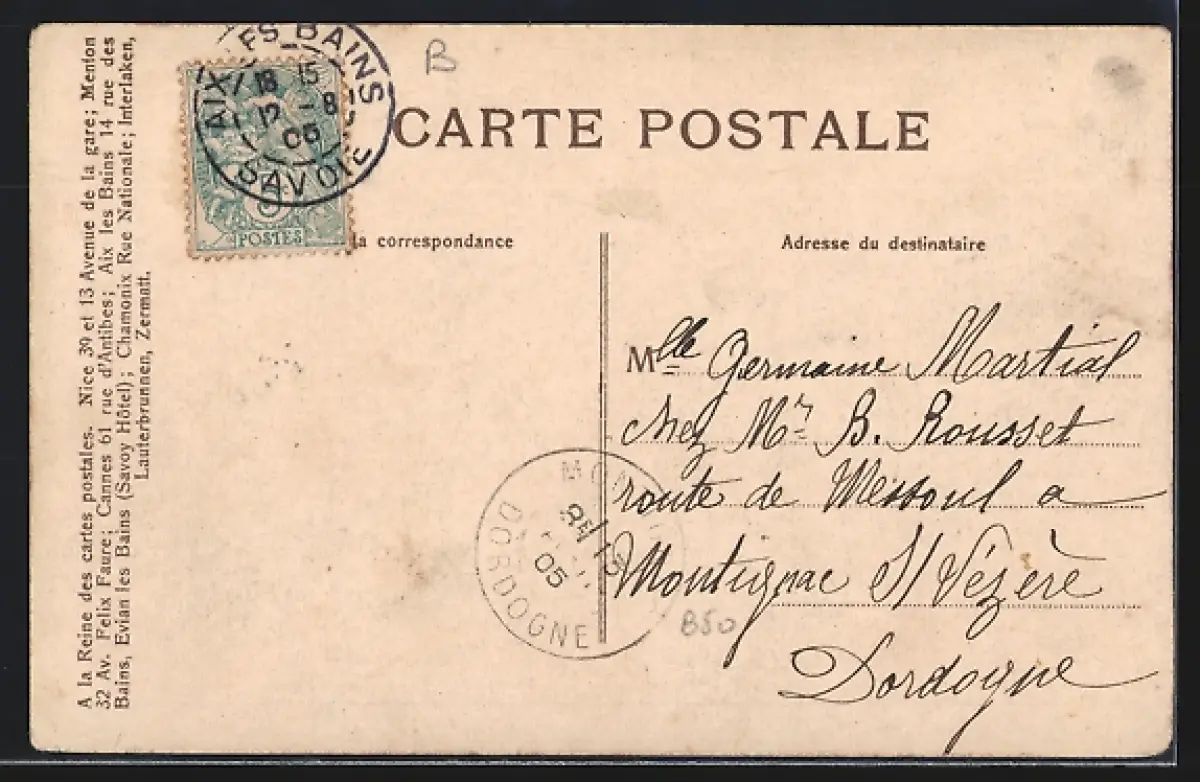 A la Reine des cartes postales. Nice 39 et 13 Avenue de la gare; Menton
32 Av. Felix Faure; Cannes 61 rue d'Antibes; Aix les Bains 14 rue des
Bains, Evian les Bains (Savoy Hôtel); Chamonix Rue Nationale; Interlaken,
Lauterbrunnen, Zermatt.
AIX LES BAINS
18 15
12 -8
05
SAVOIE
5
POSTES
B
CARTE POSTALE
la correspondance
Adresse du destinataire
Mlle Germaine Martial
chez Mr B. Rousset
route de a
Montignac S/ Vézère
Dordogne
05
DORDOGNE
B50